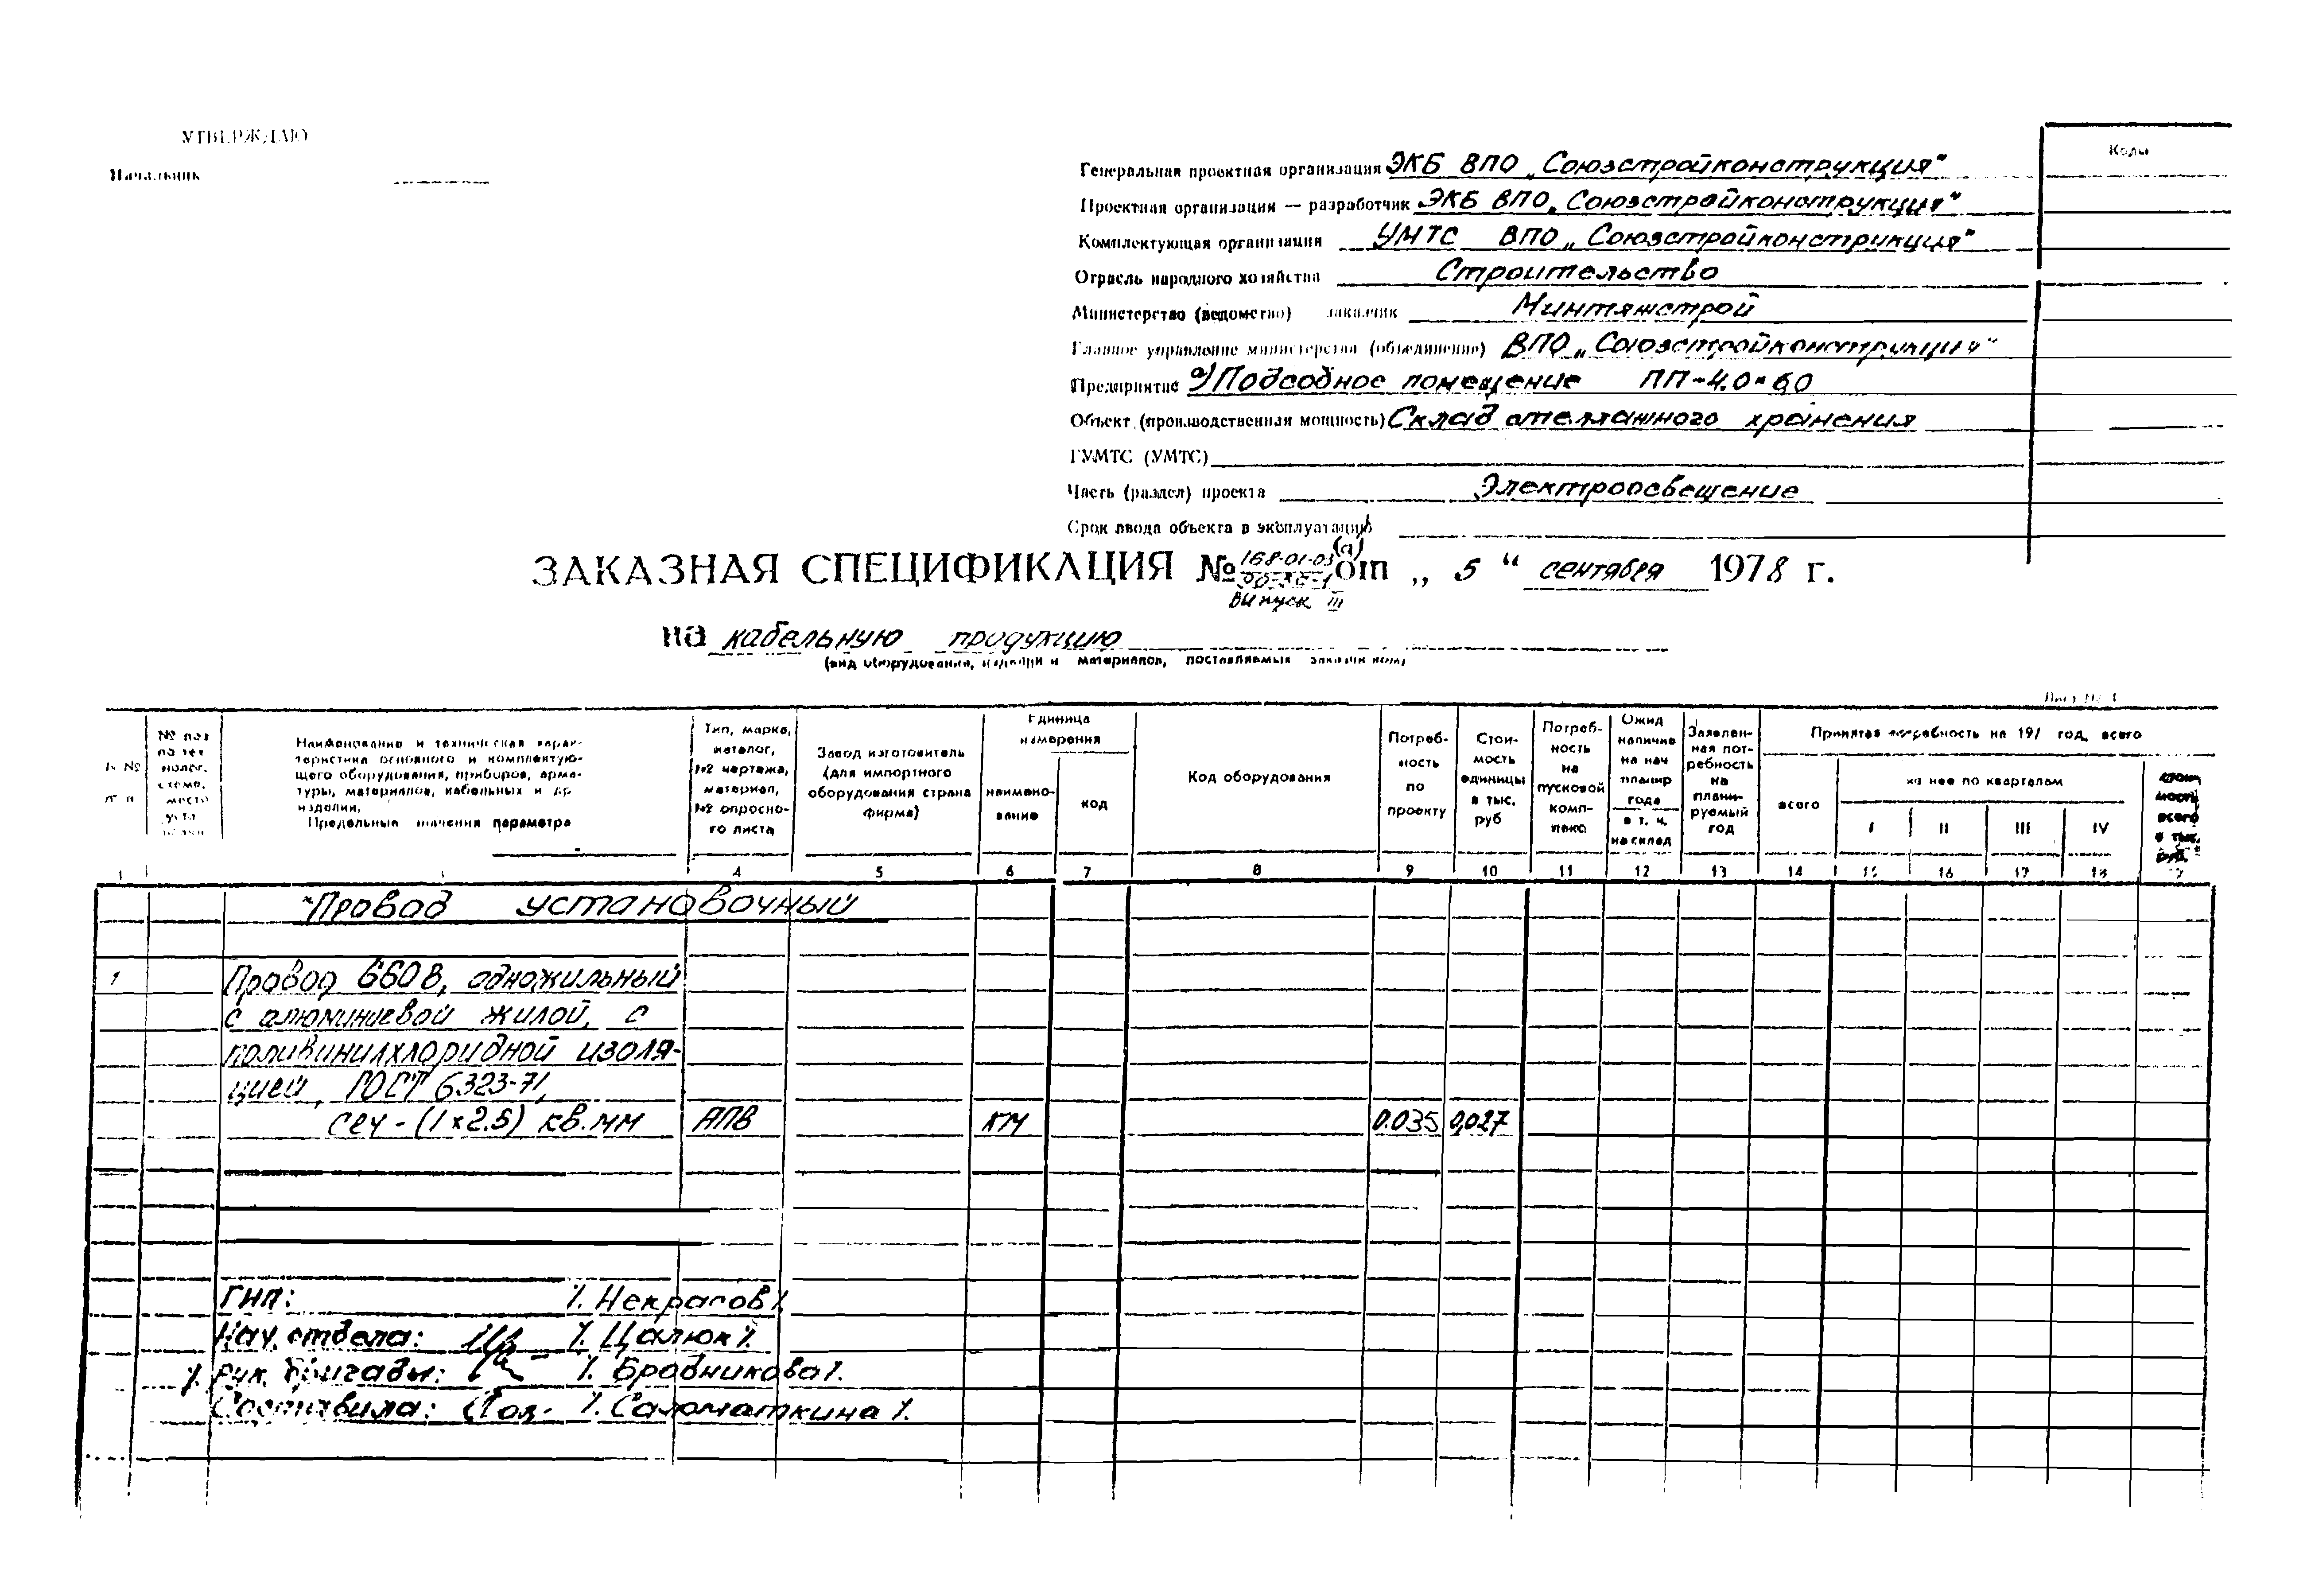 УТВЕРЖДАЮ
Начальник
Коды
Генеральная проектная организация ЭКБ ВПО „Союзстройконструкция"
Проектная организация — разработчик ЭКБ ВПО „Союзстройконструкция"
Комплектующая организация УМТС ВПО „Союзстройконструкция"
Отрасль народного хозяйства Строительство
Министерство (ведомство) заказчик Минтяжстрой
Главное управление министерства (объединение) ВПО „Союзстройконструкция"
Предприятие а) Подсобное помещение ПП-4.0×6.0
Объект (производственная мощность) Склад стеллажного хранения
ГУМТС (УМТС)
Часть (раздел) проекта Электроосвещение
Срок ввода объекта в эксплуатацию
ЗАКАЗНАЯ СПЕЦИФИКАЦИЯ № 168-01-03 (а) от „ 5 " сентября 1978 г.
выпуск III
на кабельную продукцию
(вид оборудования, изделий и материалов, поставляемых заказчиком)
Лист № 1
№ № п п
№ поз по тех нолог. схема, место уста новки
Наименование и техническая характеристика основного и комплектующего оборудования, приборов, арматуры, материалов, кабельных и др изделий.
Предельные значения параметра
Тип, марка, каталог, №2 чертежа, материал, №2 опросного листа
Завод изготовитель (для импортного оборудования страна фирма)
Единица измерения
наименование
код
Код оборудования
Потребность по проекту
Стоимость единицы в тыс. руб
Потребность на пусковой комплекс
Ожид наличие на нач планир года в т. ч. на склад
Заявленная потребность на планируемый год
Принятая потребность на 197 год, всего
всего
из нее по кварталам
I II III IV
стоимость всего в тыс. руб.
1 4 5 6 7 8 9 10 11 12 13 14 15 16 17 18
Провод установочный
1 Провод 660 В, одножильный
с алюминиевой жилой, с
поливинилхлоридной изоля-
цией, ГОСТ 6323-71,
сеч - (1×2.5) кв.мм АПВ КМ 0.035 0,027
ГИП: /. Некрасов /.
Нач. отдела: /. Цалюк /.
/. Рук бригады: /. Бровникова /.
Составила: /. Саломаткина /.